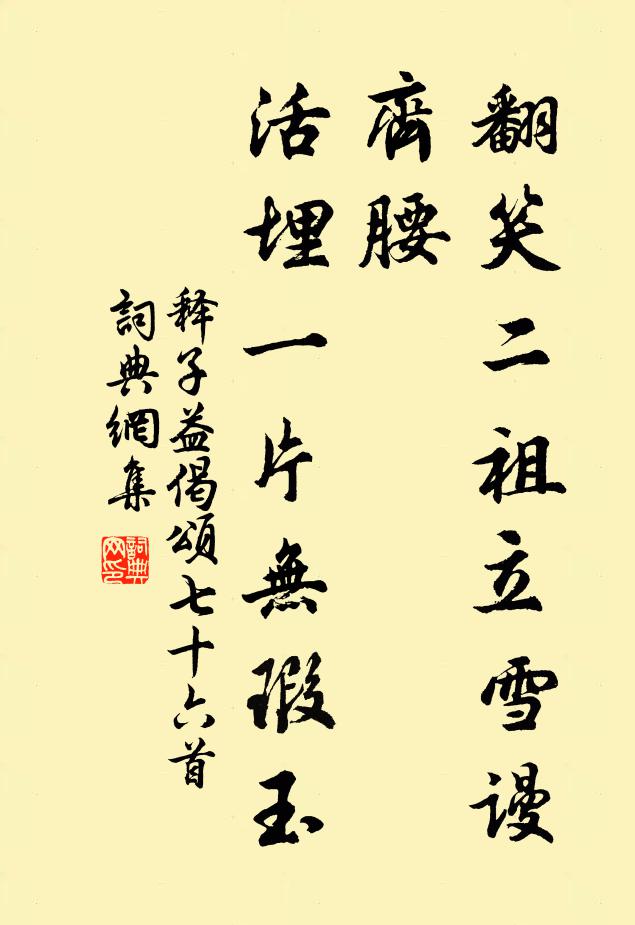 翻笑二祖立雪謾
齊腰
活埋一片無瑕玉
释子益偈頌七十六首
詞典網集
詞典网印